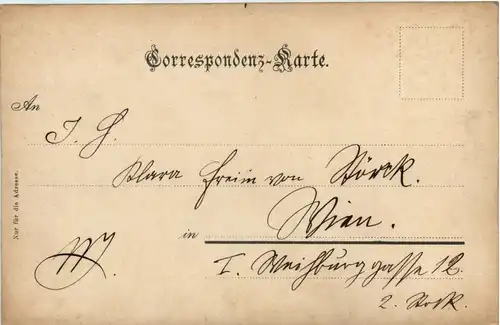 Correspondenz-Karte.
An
I. H.
Klara Freiin von Störck.
in Wien.
I. Weihburggasse 12.
2. Stock.
Nur für die Adresse.